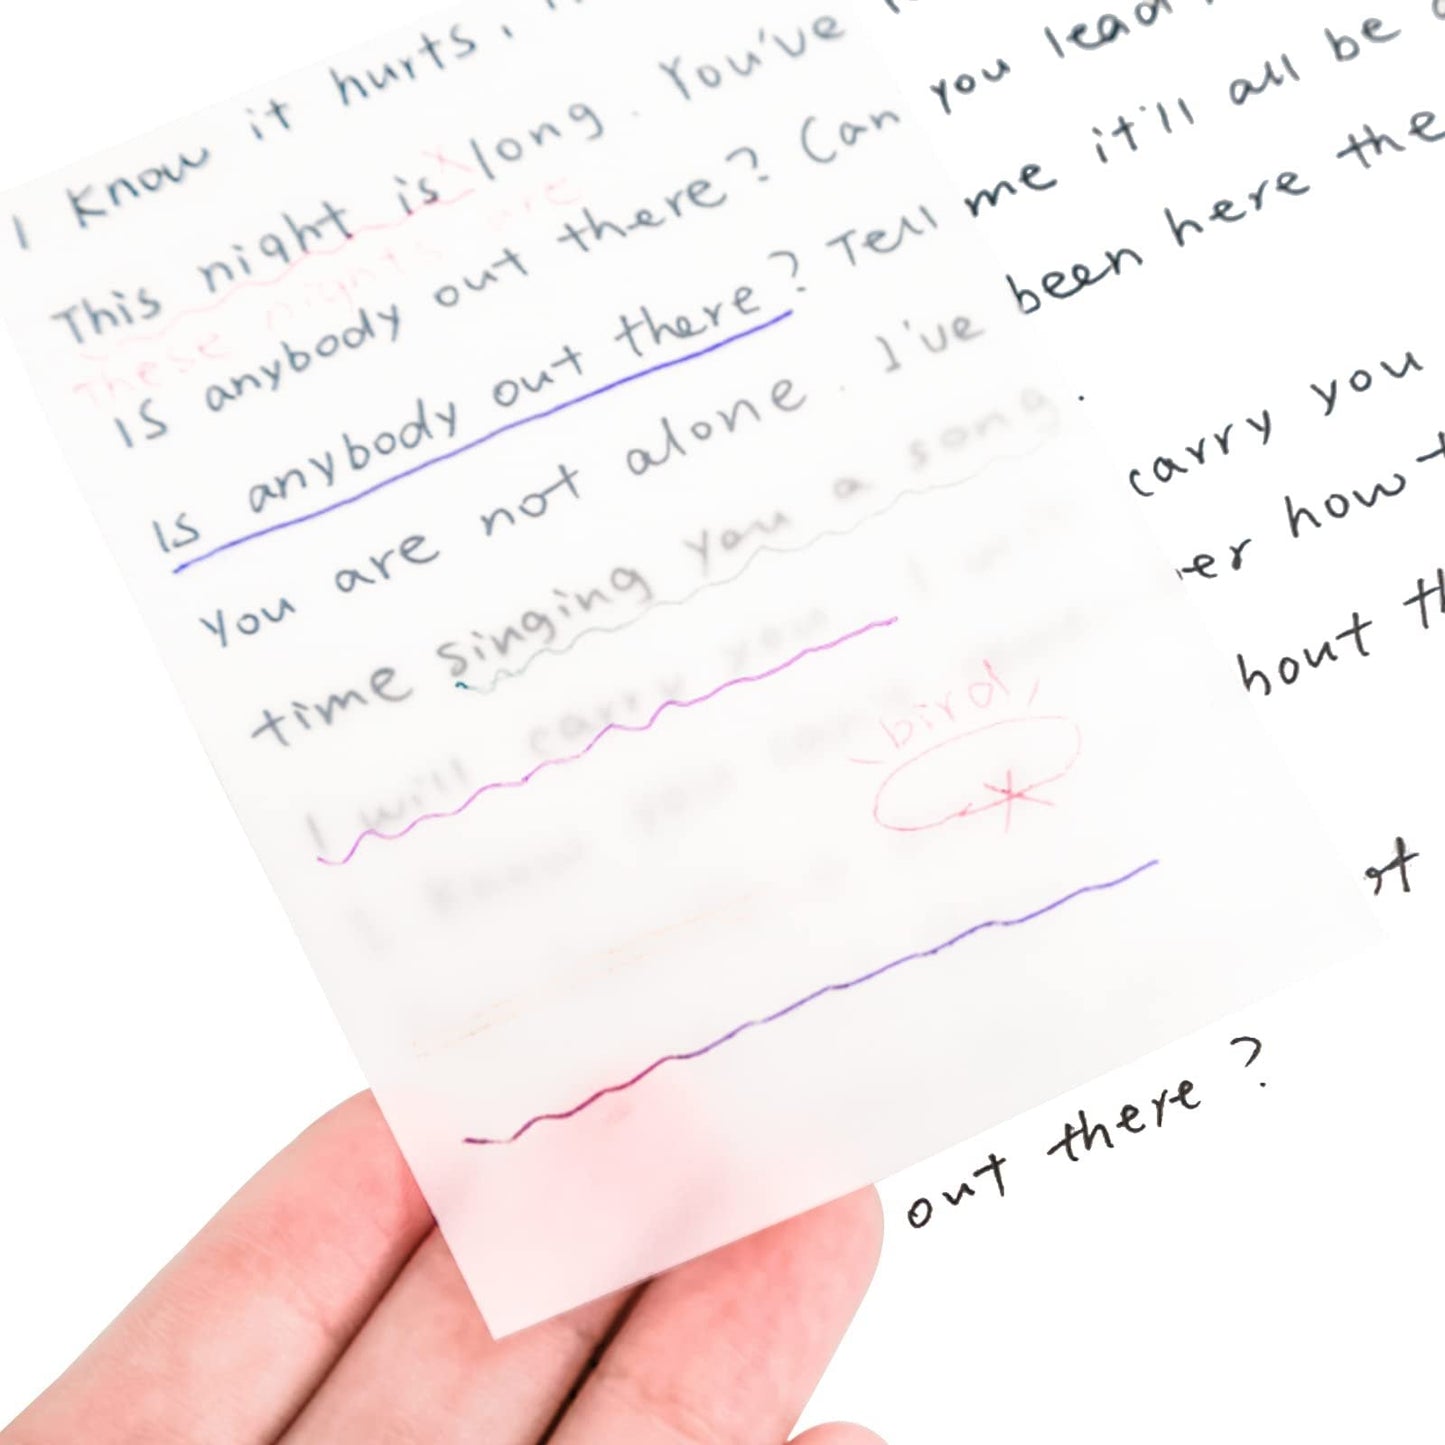 I know it hurts,
This night is long. You've
these nights are
Is anybody out there? Can you lead
Is anybody out there? Tell me it'll all be
You are not alone. I've been here the
time singing you a song.
I will carry you carry you
I know you can't er how
bird,
bout
out there?